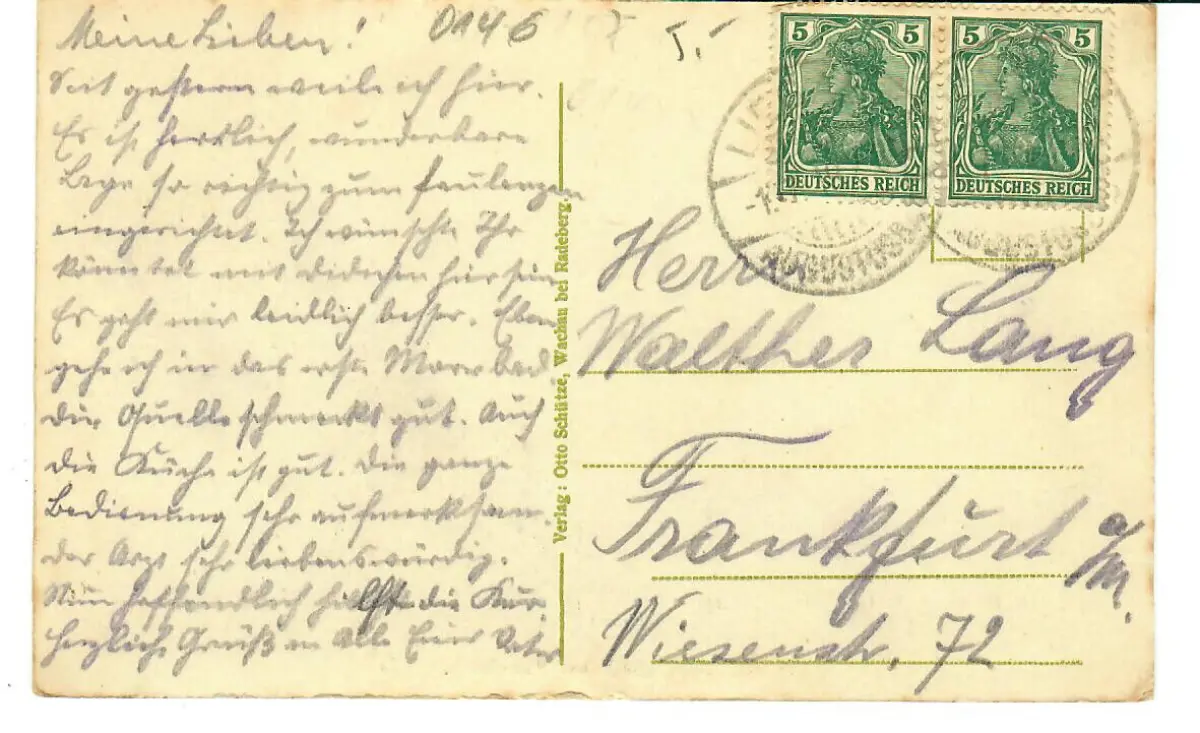 Meine Lieben!
0146
5.-
Seit gestern weile ich hier.
Es ist herrlich, wunderbare
Lage so richtig zum faulenzen
eingerichtet. Ich wünschte Ihr
könntet mit hier sein
Es geht mir leidlich besser. Eben
gehe ich in das erste Moorbad
die Quelle schmeckt gut. Auch
die Küche ist gut. Die ganze
Bedienung sehr aufmerksam.
der Arzt sehr liebenswürdig.
Nun hoffendlich hilft die Kur.
Herzliche Grüße an Alle Euer Vater
Verlag: Otto Schütze, Wachau bei Radeberg.
5 5
DEUTSCHES REICH
5 5
DEUTSCHES REICH
AUGUSTUSB
Herrn
Walther Lang
Frankfurt a/M.
Wiesenstr. 72